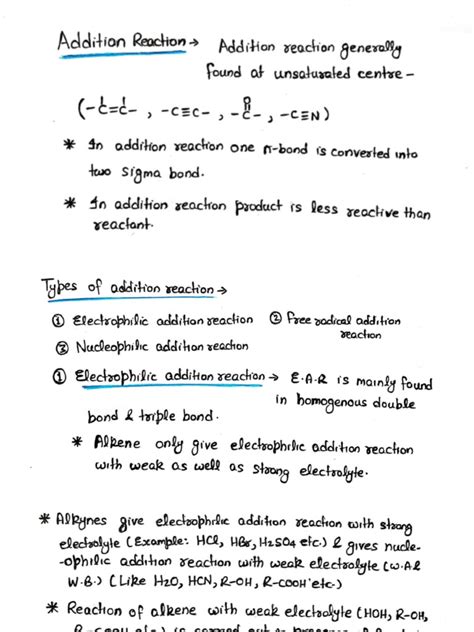 Addition Reaction → Addition reaction generally
found at unsaturated centre –
(-C=C- , -C≡C- , -C- , -C≡N)
O
* In addition reaction one π-bond is converted into
two sigma bond.
* In addition reaction product is less reactive than
reactant.
Types of addition reaction →
① Electrophilic addition reaction ② Free radical addition
reaction
③ Nucleophilic addition reaction
① Electrophilic addition reaction → E.A.R is mainly found
in homogenous double
bond & triple bond.
* Alkene only give electrophilic addition reaction
with weak as well as strong electrolyte.
* Alkynes give electrophilic addition reaction with strong
electrolyte (Example: HCl, HBr, H2SO4 etc.) & gives nucle-
-ophilic addition reaction with weak electrolyte (W.A &
W.B.) (Like H2O, HCN, R-OH, R-COOH etc.)
* Reaction of alkene with weak electrolyte (HOH, R-OH,